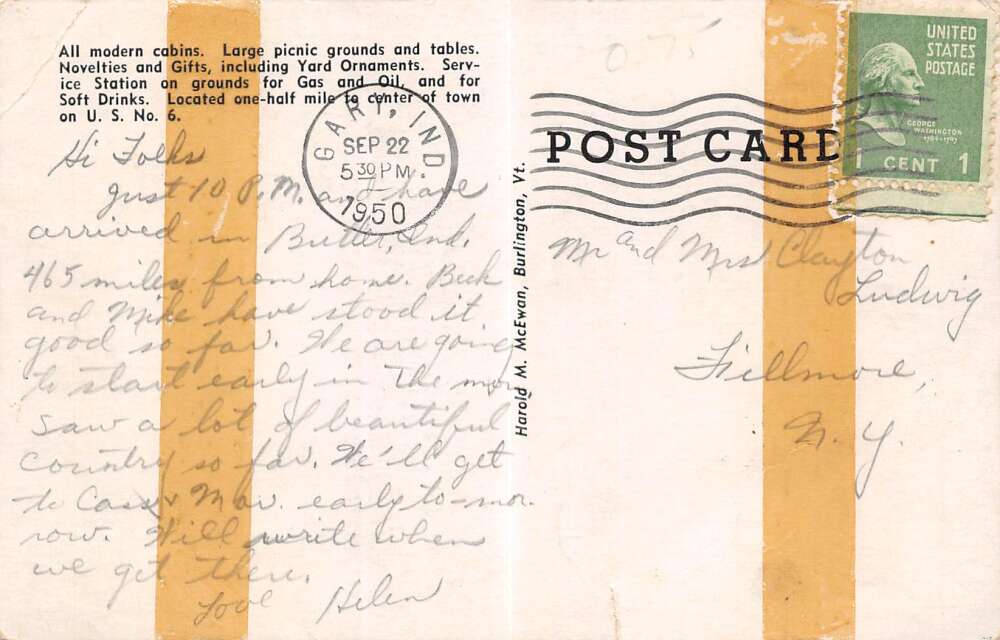 All modern cabins. Large picnic grounds and tables.
Novelties and Gifts, including Yard Ornaments. Serv-
ice Station on grounds for Gas and Oil, and for
Soft Drinks. Located one-half mile to center of town
on U. S. No. 6.
GARY, IND.
SEP 22
5 30 PM
1950
Hi Folks
Just 10 P.M. and have
arrived in Butler, Ind.
465 miles from home. Beck
and Mike have stood it
good so far. We are going
to start early in the mor.
Saw a lot of beautiful
Country so far. We'll get
to Cass & Mar. early to-mor-
row. Will write when
we get there.
Love Helen
Harold M. McEwan, Burlington, Vt.
POST CARD
UNITED
STATES
POSTAGE
GEORGE
WASHINGTON
1789-1797
1 CENT 1
Mr and Mrs Clayton
Ludwig
Fillmore,
N.Y.